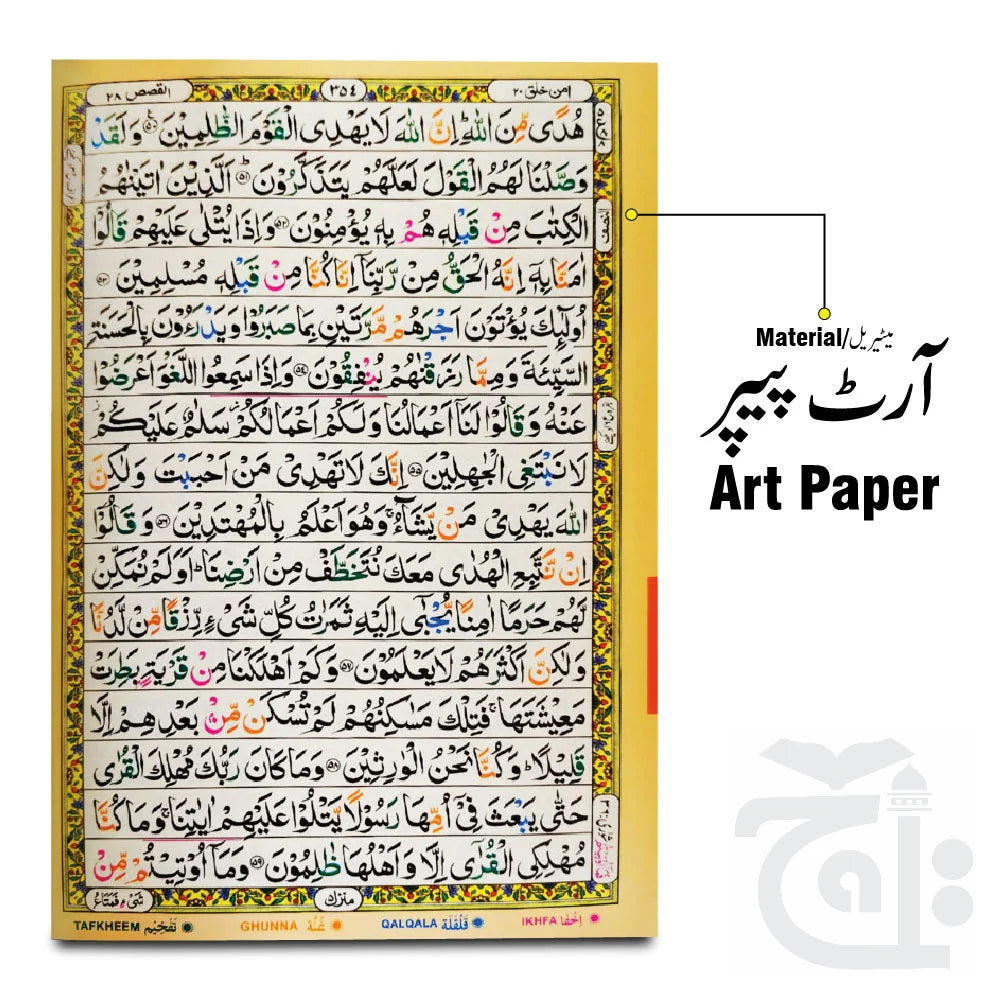 امن خلق ۲۰
۳۵۴
القصص ۲۸
هُدًى مِّنَ اللّٰهِ ؕ اِنَّ اللّٰهَ لَا يَهْدِى الْقَوْمَ الظّٰلِمِيْنَ ۝۵۰ وَلَقَدْ
وَصَّلْنَا لَهُمُ الْقَوْلَ لَعَلَّهُمْ يَتَذَكَّرُوْنَ ؕ ۝۵۱ اَلَّذِيْنَ اٰتَيْنٰهُمُ
الْكِتٰبَ مِنْ قَبْلِهٖ هُمْ بِهٖ يُؤْمِنُوْنَ ۝۵۲ وَاِذَا يُتْلٰى عَلَيْهِمْ قَالُوْۤا
اٰمَنَّا بِهٖۤ اِنَّهُ الْحَقُّ مِنْ رَّبِّنَاۤ اِنَّا كُنَّا مِنْ قَبْلِهٖ مُسْلِمِيْنَ ۝۵۳
اُولٰٓئِكَ يُؤْتَوْنَ اَجْرَهُمْ مَّرَّتَيْنِ بِمَا صَبَرُوْا وَيَدْرَءُوْنَ بِالْحَسَنَةِ
السَّيِّئَةَ وَمِمَّا رَزَقْنٰهُمْ يُنْفِقُوْنَ ۝۵۴ وَاِذَا سَمِعُوا اللَّغْوَ اَعْرَضُوْا
عَنْهُ وَقَالُوْا لَنَاۤ اَعْمَالُنَا وَلَكُمْ اَعْمَالُكُمْ سَلٰمٌ عَلَيْكُمْ
لَا نَبْتَغِى الْجٰهِلِيْنَ ۝۵۵ اِنَّكَ لَا تَهْدِىْ مَنْ اَحْبَبْتَ وَلٰكِنَّ
اللّٰهَ يَهْدِىْ مَنْ يَّشَآءُ ۚ وَهُوَ اَعْلَمُ بِالْمُهْتَدِيْنَ ۝۵۶ وَقَالُوْۤا
اِنْ نَّتَّبِعِ الْهُدٰى مَعَكَ نُتَخَطَّفْ مِنْ اَرْضِنَا ؕ اَوَلَمْ نُمَكِّنْ
لَّهُمْ حَرَمًا اٰمِنًا يُّجْبٰۤى اِلَيْهِ ثَمَرٰتُ كُلِّ شَىْءٍ رِّزْقًا مِّنْ لَّدُنَّا
وَلٰكِنَّ اَكْثَرَهُمْ لَا يَعْلَمُوْنَ ۝۵۷ وَكَمْ اَهْلَكْنَا مِنْ قَرْيَةٍۭ بَطِرَتْ
مَعِيْشَتَهَا ۚ فَتِلْكَ مَسٰكِنُهُمْ لَمْ تُسْكَنْ مِّنْۢ بَعْدِهِمْ اِلَّا
قَلِيْلًا ؕ وَكُنَّا نَحْنُ الْوٰرِثِيْنَ ۝۵۸ وَمَا كَانَ رَبُّكَ مُهْلِكَ الْقُرٰى
حَتّٰى يَبْعَثَ فِىْۤ اُمِّهَا رَسُوْلًا يَّتْلُوْا عَلَيْهِمْ اٰيٰتِنَا ۚ وَمَا كُنَّا
مُهْلِكِى الْقُرٰٓى اِلَّا وَاَهْلُهَا ظٰلِمُوْنَ ۝۵۹ وَمَاۤ اُوْتِيْتُمْ مِّنْ
النصف
منزل
شَىْءٍ فَمَتَاعُ
اِخْفَا IKHFA
قَلْقَلَة QALQALA
غُنَّة GHUNNA
تَفْخِيْم TAFKHEEM
Material/میٹیریل
آرٹ پیپر
Art Paper